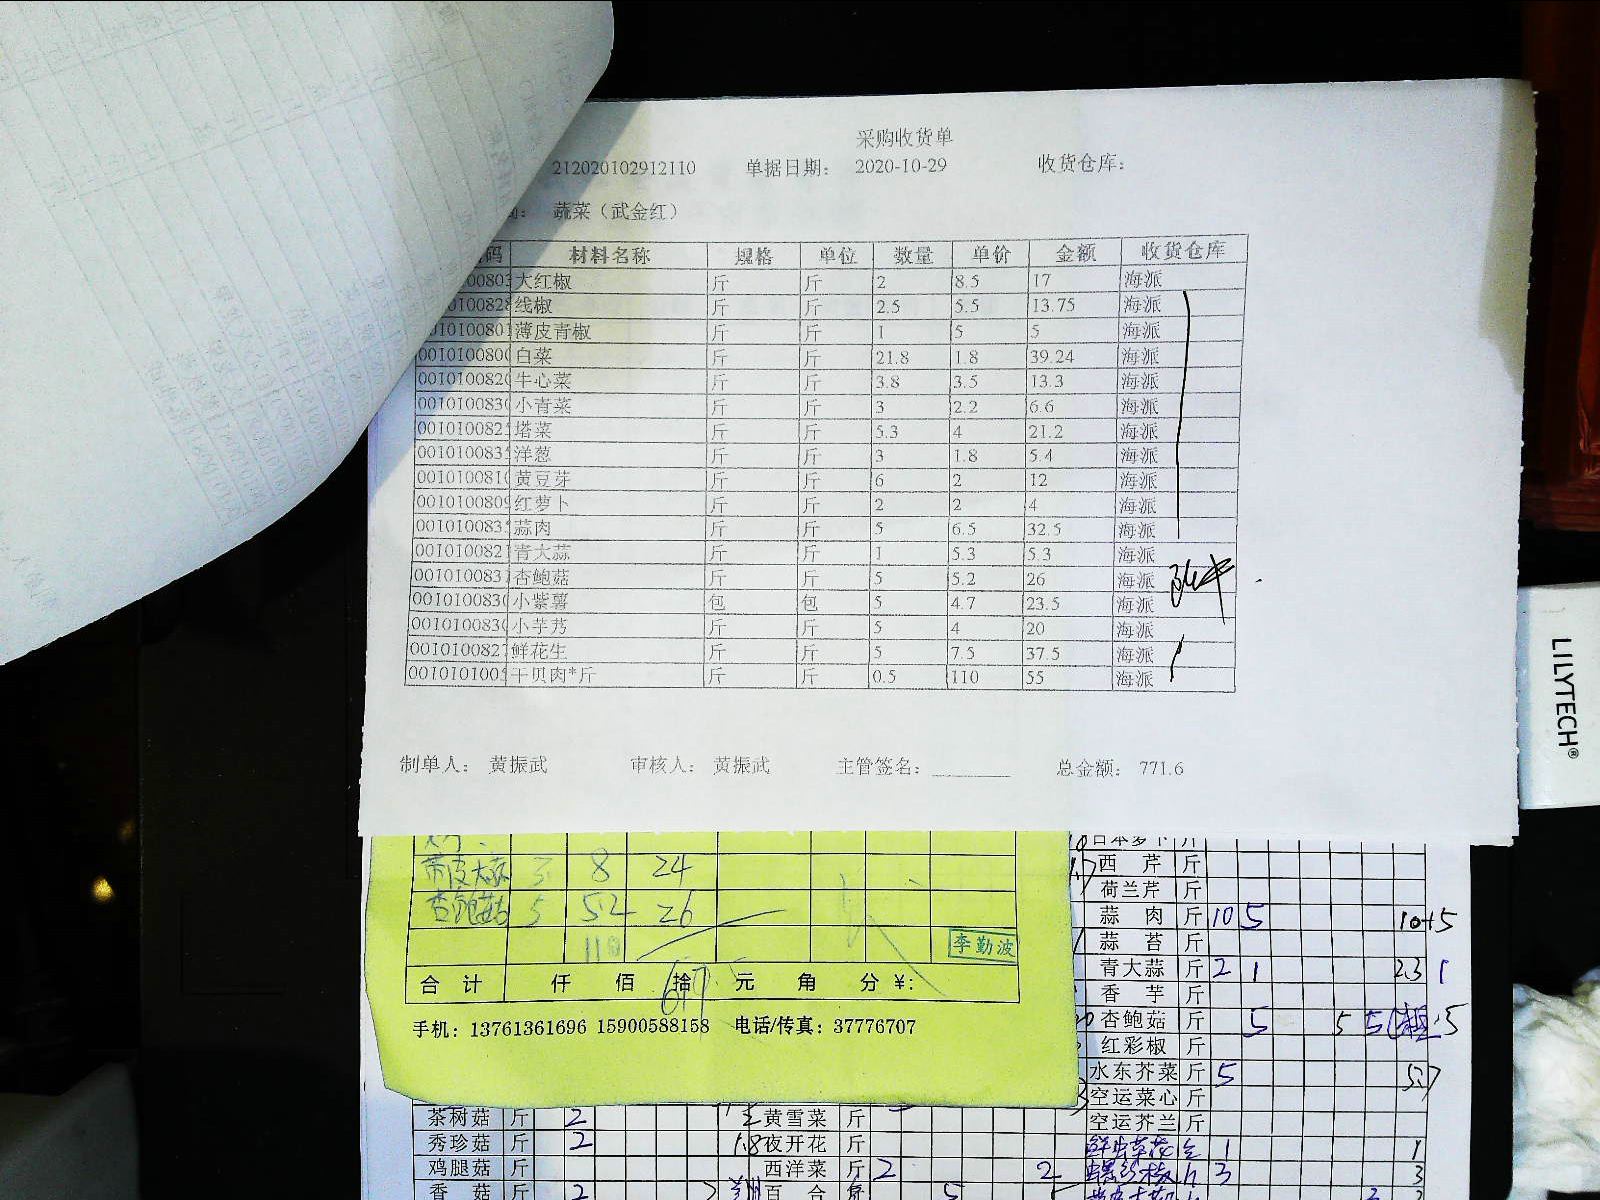 采购收货单
212020102912110 单据日期： 2020-10-29 收货仓库：
蔬菜（武金红）
码 材料名称 规格 单位 数量 单价 金额 收货仓库
大红椒 斤 斤 2 8.5 17 海派
线椒 斤 斤 2.5 5.5 13.75 海派
薄皮青椒 斤 斤 1 5 5 海派
白菜 斤 斤 21.8 1.8 39.24 海派
001010082 牛心菜 斤 斤 3.8 3.5 13.3 海派
001010083 小青菜 斤 斤 3 2.2 6.6 海派
001010082 塔菜 斤 斤 5.3 4 21.2 海派
001010083 洋葱 斤 斤 3 1.8 5.4 海派
001010081 黄豆芽 斤 斤 6 2 12 海派
001010080 红萝卜 斤 斤 2 2 4 海派
001010083 蒜肉 斤 斤 5 6.5 32.5 海派
001010082 青大蒜 斤 斤 1 5.3 5.3 海派
001010083 杏鲍菇 斤 斤 5 5.2 26 海派
001010083 小紫薯 包 包 5 4.7 23.5 海派
001010083 小芋艿 斤 斤 5 4 20 海派
001010082 鲜花生 斤 斤 5 7.5 37.5 海派
001010100 干贝肉*斤 斤 斤 0.5 110 55 海派
制单人： 黄振武 审核人： 黄振武 主管签名： 总金额： 771.6
LILYTECH®
3 8 24
杏鲍菇 5 52 26
110
李勤波
合 计 仟 佰 拾 元 角 分 ¥:
手机：13761361696 15900588158 电话/传真：37776707
日本萝卜 斤
西 芹 斤
荷兰芹 斤
蒜 肉 斤 10 5 10+5
蒜 苔 斤
青大蒜 斤 2 1 2.3 1
香 芋 斤
杏鲍菇 斤 5 5 5
红彩椒 斤
水东芥菜 斤 5 5.7
空运菜心 斤
空运芥兰 斤
茶树菇 斤 2 黄雪菜 斤
秀珍菇 斤 2 1.8 夜开花 斤
鸡腿菇 斤 西洋菜 斤 2 2
香 菇 斤 2 百 合 斤 5
1 1
3 3